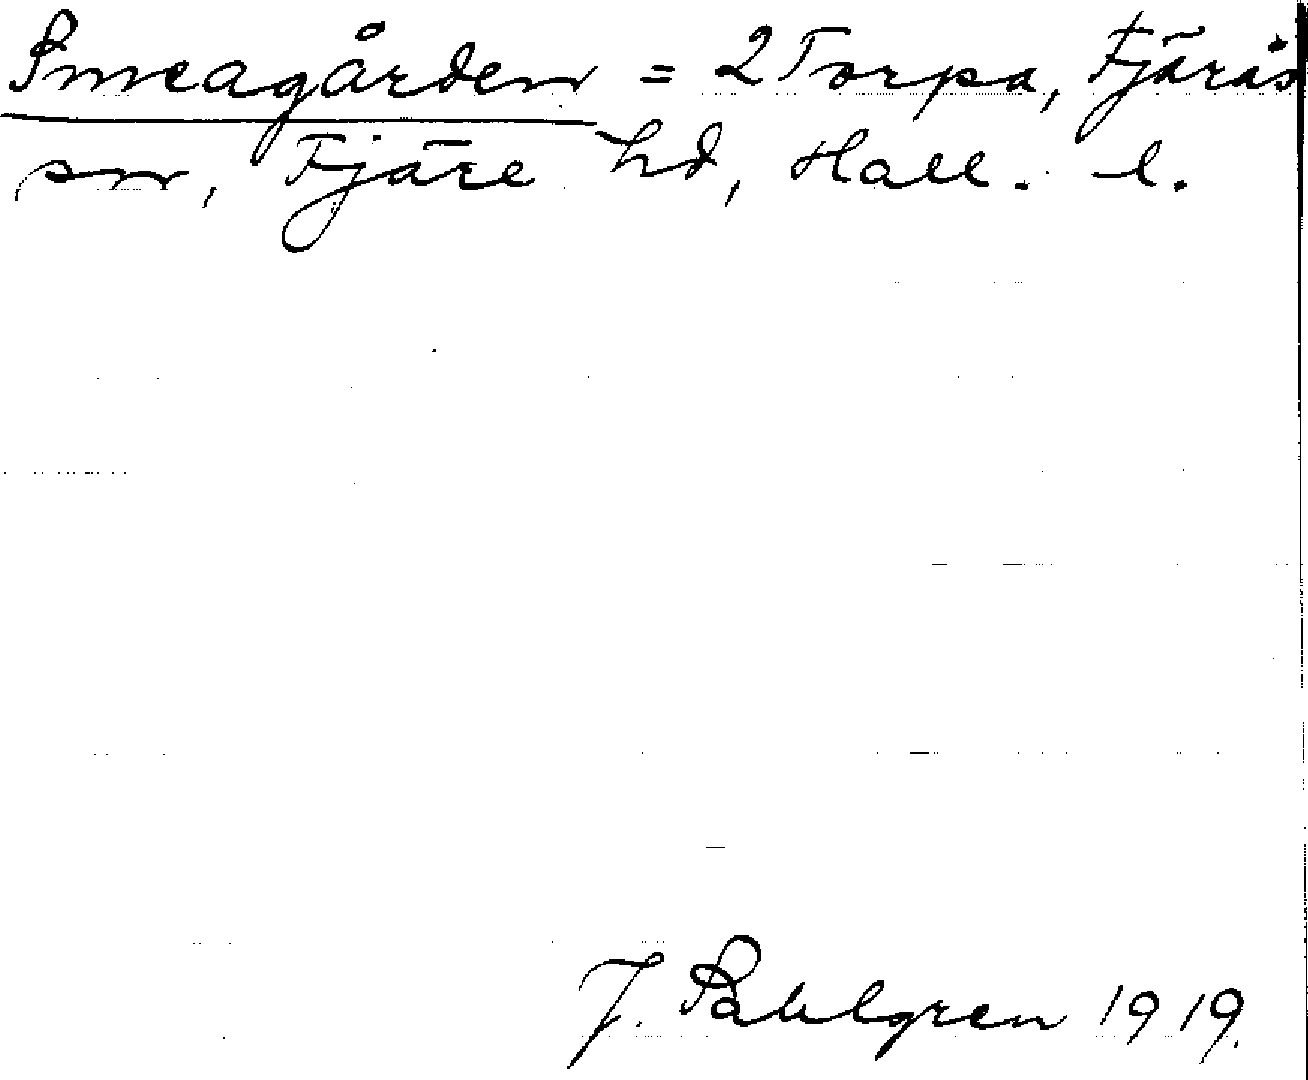 Smeagården = 2 Torpa, Fjärås
sn, Fjäre hd, Hall. l.
J. Sahlgren 1919.